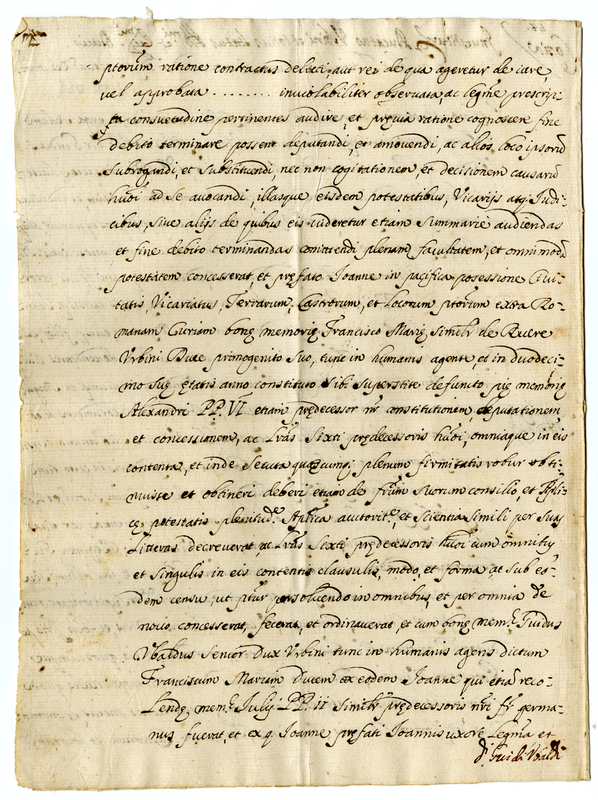 ptorum ratione contractus delecti, aut rei de qua ageretur de iure
vel approbata ........ inviolabiliter observata, ac legme prescrip-
ta consuetudine pertinentes audire, et previa ratione cognoscere fine
debito terminare possent deputandi, et amovendi, ac alios loco ipsorum
subrogandi, et substituendi, nec non cogitationem, et decisionem causarum
huoi ad se avocandi, illasque eisdem potestatibus, Vicarijs atq Iudi-
cibus, sive alijs de quibus eis videretur etiam summarie audiendas
et fine debito terminandas comittendi plenam facultatem, et omnimodam
potestatem concesserat, et prefato Ioanne in pacifica posessione Civi-
tatis, Vicariatus, Terrarum, Castrorum, et locorum ptorum extra Ro-
manam Curiam bone memorie Francisco Marie similr de Ruere
Urbini Duce primogenito suo, tunc in humanis agente, et in duodeci-
mo sue etatis anno constituto sibi superstite defuncto pie memorie
Alexandri PP. VI etiam predecessor nr constitutionem, deputationem
et concessionem, ac lras Sixti predecessoris huoi, omniaque in eis
contenta, et inde secuta quecunq plenum firmitatis robur obti-
nuisse et obtineri deberi etiam de frum suorum consilio et Apli-
ce potestatis plenitud.e Aplica auctorit.e et scientia simili per suas
litteras decreverat, ac lras Sixti predecessoris huoi cum omnibus
et singulis in eis contentis clausulis, modo, et forma ac sub eis-
dem censu, ut ptur persolvendo in omnibus, et per omnia de
novo concesserat, fecerat, et ordinaverat, et cum bone mem.e Guidus
Ubaldus senior Dux Urbini tunc in humanis agens dictum
Franciscum Mariam Ducem ex eodem Ioanne qui etia reco-
lende mem.e Iulij PP. II similr predecessoris nri fr germa-
nus fuerat, et ex q. Ioanne prefati Ioannis uxore legma et
d. Guidi Ubaldi